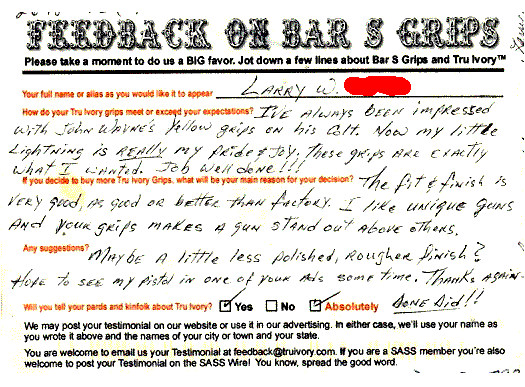 FEEDBACK ON BAR S GRIPS
Please take a moment to do us a BIG favor. Jot down a few lines about Bar S Grips and Tru Ivory™
Your full name or alias as you would like it to appear LARRY W.
How do your Tru Ivory grips meet or exceed your expectations? I'VE ALWAYS BEEN IMPRESSED
WITH JOHN WAYNE'S YELLOW GRIPS ON HIS COLT. NOW MY LITTLE
LIGHTNING IS REALLY MY PRIDE & JOY. THESE GRIPS ARE EXACTLY
WHAT I WANTED. JOB WELL DONE!!!
If you decide to buy more Tru Ivory Grips, what will be your main reason for your decision? THE FIT & FINISH IS
VERY GOOD, AS GOOD OR BETTER THAN FACTORY. I LIKE UNIQUE GUNS
AND YOUR GRIPS MAKES A GUN STAND OUT ABOVE OTHERS.
Any suggestions? MAYBE A LITTLE LESS POLISHED, ROUGHER FINISH?
HOPE TO SEE MY PISTOL IN ONE OF YOUR ADS SOME TIME. THANKS AGAIN-
Will you tell your pards and kinfolk about Tru Ivory? Yes No Absolutely DONE DID!!
We may post your testimonial on our website or use it in our advertising. In either case, we'll use your name as
you wrote it above and the names of your city or town and your state.
You are welcome to email us your Testimonial at feedback@truivory.com. If you are a SASS member you're also
welcome to post your Testimonial on the SASS Wire! You know, spread the good word.